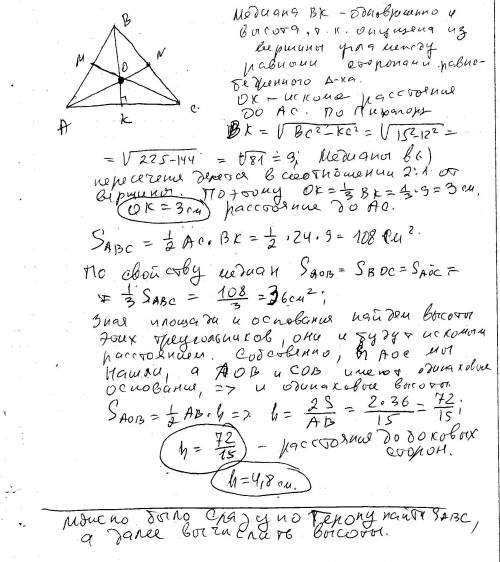 B
M
N
O
A
K
C
Медиана BK - одновременно и
высота, т.к. опущена из
вершины угла между
равными сторонами равно-
бедренного Δ-ка.
OK - искомое расстояние
до AC. По Пифагору
BK = √BC²-KC² = √15²-12² =
= √225-144 = √81 = 9; Медианы в
пересечения делятся в соотношении 2:1 от
вершины. Поэтому OK = 1/3 BK = 1/3 · 9 = 3 см.
OK = 3 см расстояние до AC.
S ABC = 1/2 AC · BK = 1/2 · 24 · 9 = 108 см².
По свойству медиан S AOB = S BOC = S AOC =
= 1/3 S ABC = 108/3 = 36 см²;
Зная площади и основания найдем высоты
этих треугольников, они и будут искомым
расстоянием. Собственно, в AOC мы
нашли, а AOB и COB имеют одинаковые
основания, => и одинаковые высоты.
S AOB = 1/2 AB · h => h = 2S/AB = 2·36/15 = 72/15;
h = 72/15 - расстояние до боковых
сторон.
h = 4,8 см.
можно было сразу по Герону найти S ABC,
а далее вычислить высоты.